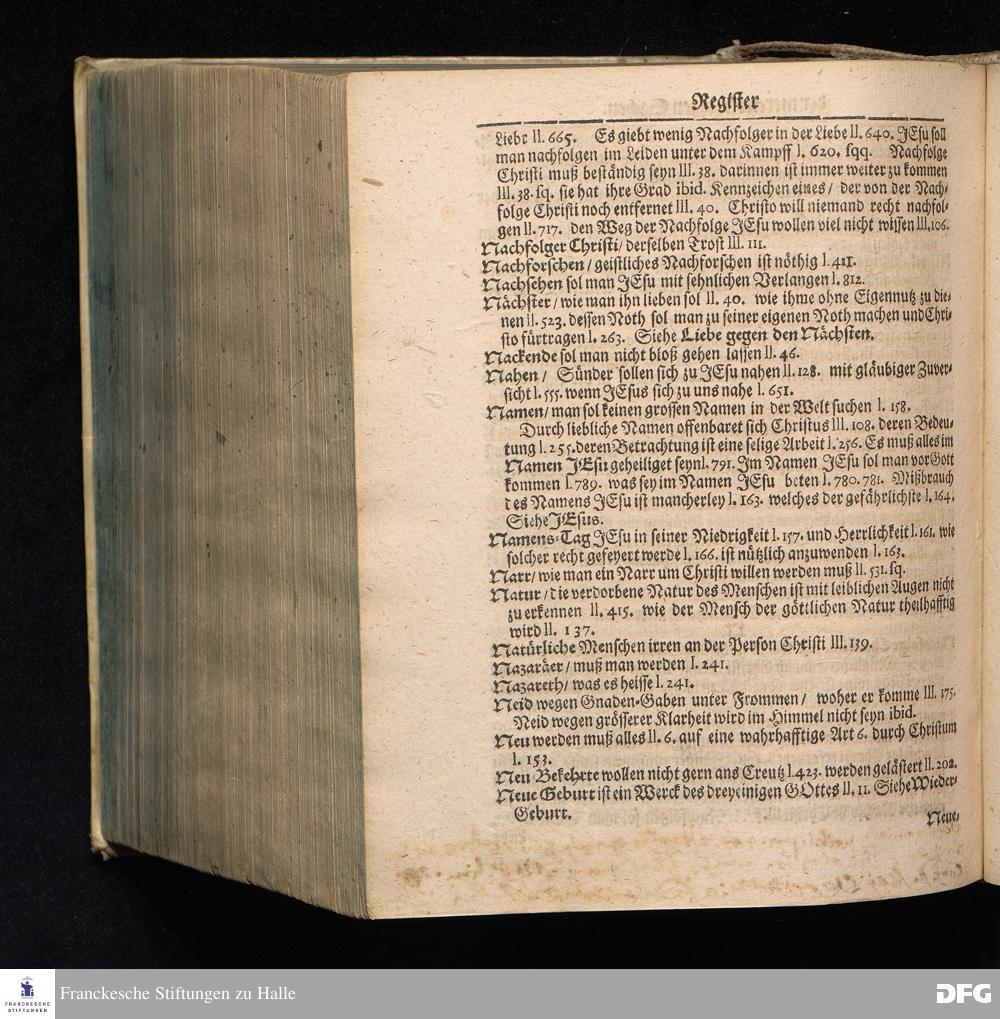 Register
Liebe II. 665. Es giebt wenig Nachfolger in der Liebe II. 640. JEsu soll
man nachfolgen im Leiden unter dem Kampff I. 620. sqq. Nachfolge
Christi muß beständig seyn III. 38. darinnen ist immer weiter zu kommen
III. 38. sq. sie hat ihre Grad ibid. Kennzeichen eines / der von der Nach-
folge Christi noch entfernet III. 40. Christo will niemand recht nachfol-
gen II. 717. den Weg der Nachfolge JEsu wollen viel nicht wissen III. 106.
Nachfolger Christi / derselben Trost III. 111.
Nachforschen / geistliches Nachforschen ist nöthig I. 411.
Nachsehen sol man JEsu mit sehnlichen Verlangen I. 812.
Nächster / wie man ihn lieben sol II. 40. wie ihme ohne Eigennutz zu die-
nen II. 523. dessen Noth sol man zu seiner eigenen Noth machen und Chri-
sto fürtragen I. 263. Siehe Liebe gegen den Nächsten.
Nackende sol man nicht bloß gehen lassen II. 46.
Nahen / Sünder sollen sich zu JEsu nahen II. 128. mit gläubiger Zuver-
sicht I. 555. wenn JEsus sich zu uns nahe I. 651.
Namen / man sol keinen grossen Namen in der Welt suchen I. 158.
Durch liebliche Namen offenbaret sich Christus III. 108. deren Bedeu-
tung I. 255. deren Betrachtung ist eine selige Arbeit I. 256. Es muß alles im
Namen JEsu geheiliget seyn I. 791. Im Namen JEsu sol man vor Gott
kommen I. 789. was sey im Namen JEsu beten I. 780. 781. Mißbrauch
des Namens JEsu ist mancherley I. 163. welches der gefährlichste I. 164.
Siehe JEsus.
Namens-Tag JEsu in seiner Niedrigkeit I. 157. und Herrlichkeit I. 161. wie
solcher recht gefeyert werde I. 166. ist nützlich anzuwenden I. 163.
Narr / wie man ein Narr um Christi willen werden muß II. 531. sq.
Natur / die verdorbene Natur des Menschen ist mit leiblichen Augen nicht
zu erkennen II. 415. wie der Mensch der göttlichen Natur theilhafftig
wird II. 137.
Natürliche Menschen irren an der Person Christi III. 139.
Nazaräer / muß man werden I. 241.
Nazareth / was es heisse I. 241.
Neid wegen Gnaden-Gaben unter Frommen / woher er komme III. 175.
Neid wegen grösserer Klarheit wird im Himmel nicht seyn ibid.
Neu werden muß alles II. 6. auf eine wahrhafftige Art 6. durch Christum
I. 153.
Neu-Bekehrte wollen nicht gern ans Creutz I. 423. werden gelästert II. 202.
Neue Geburt ist ein Werck des dreyeinigen GOttes II. 11. Siehe Wieder-
Geburt.
Neue-
FRANCKESCHE
STIFTUNGEN
Franckesche Stiftungen zu Halle
DFG